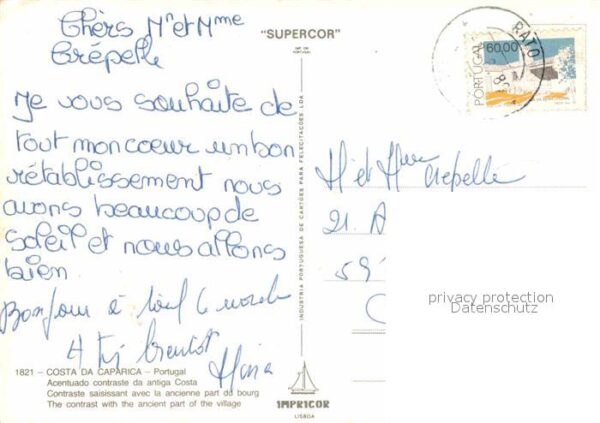 Chèrs Mr et Mme
Crépelle
Je vous souhaite de
tout mon coeur un bon
rétablissement nous
avons beaucoup de
soleil et nous allons
bien
Bonjour à tout le monde
A bientôt
1821 – COSTA DA CAPARICA – Portugal
Acentuado contraste da antiga Costa
Contraste saisissant avec la ancienne part du bourg
The contrast with the ancient part of the village
"SUPERCOR"
INDUSTRIA PORTUGUESA DE CARTÕES PARA FELICITAÇÕES LDA
IMPRICOR
LISBOA
PORTUGAL 60.00
RATO
M et Mme Crepelle
21. A
59
privacy protection
Datenschutz